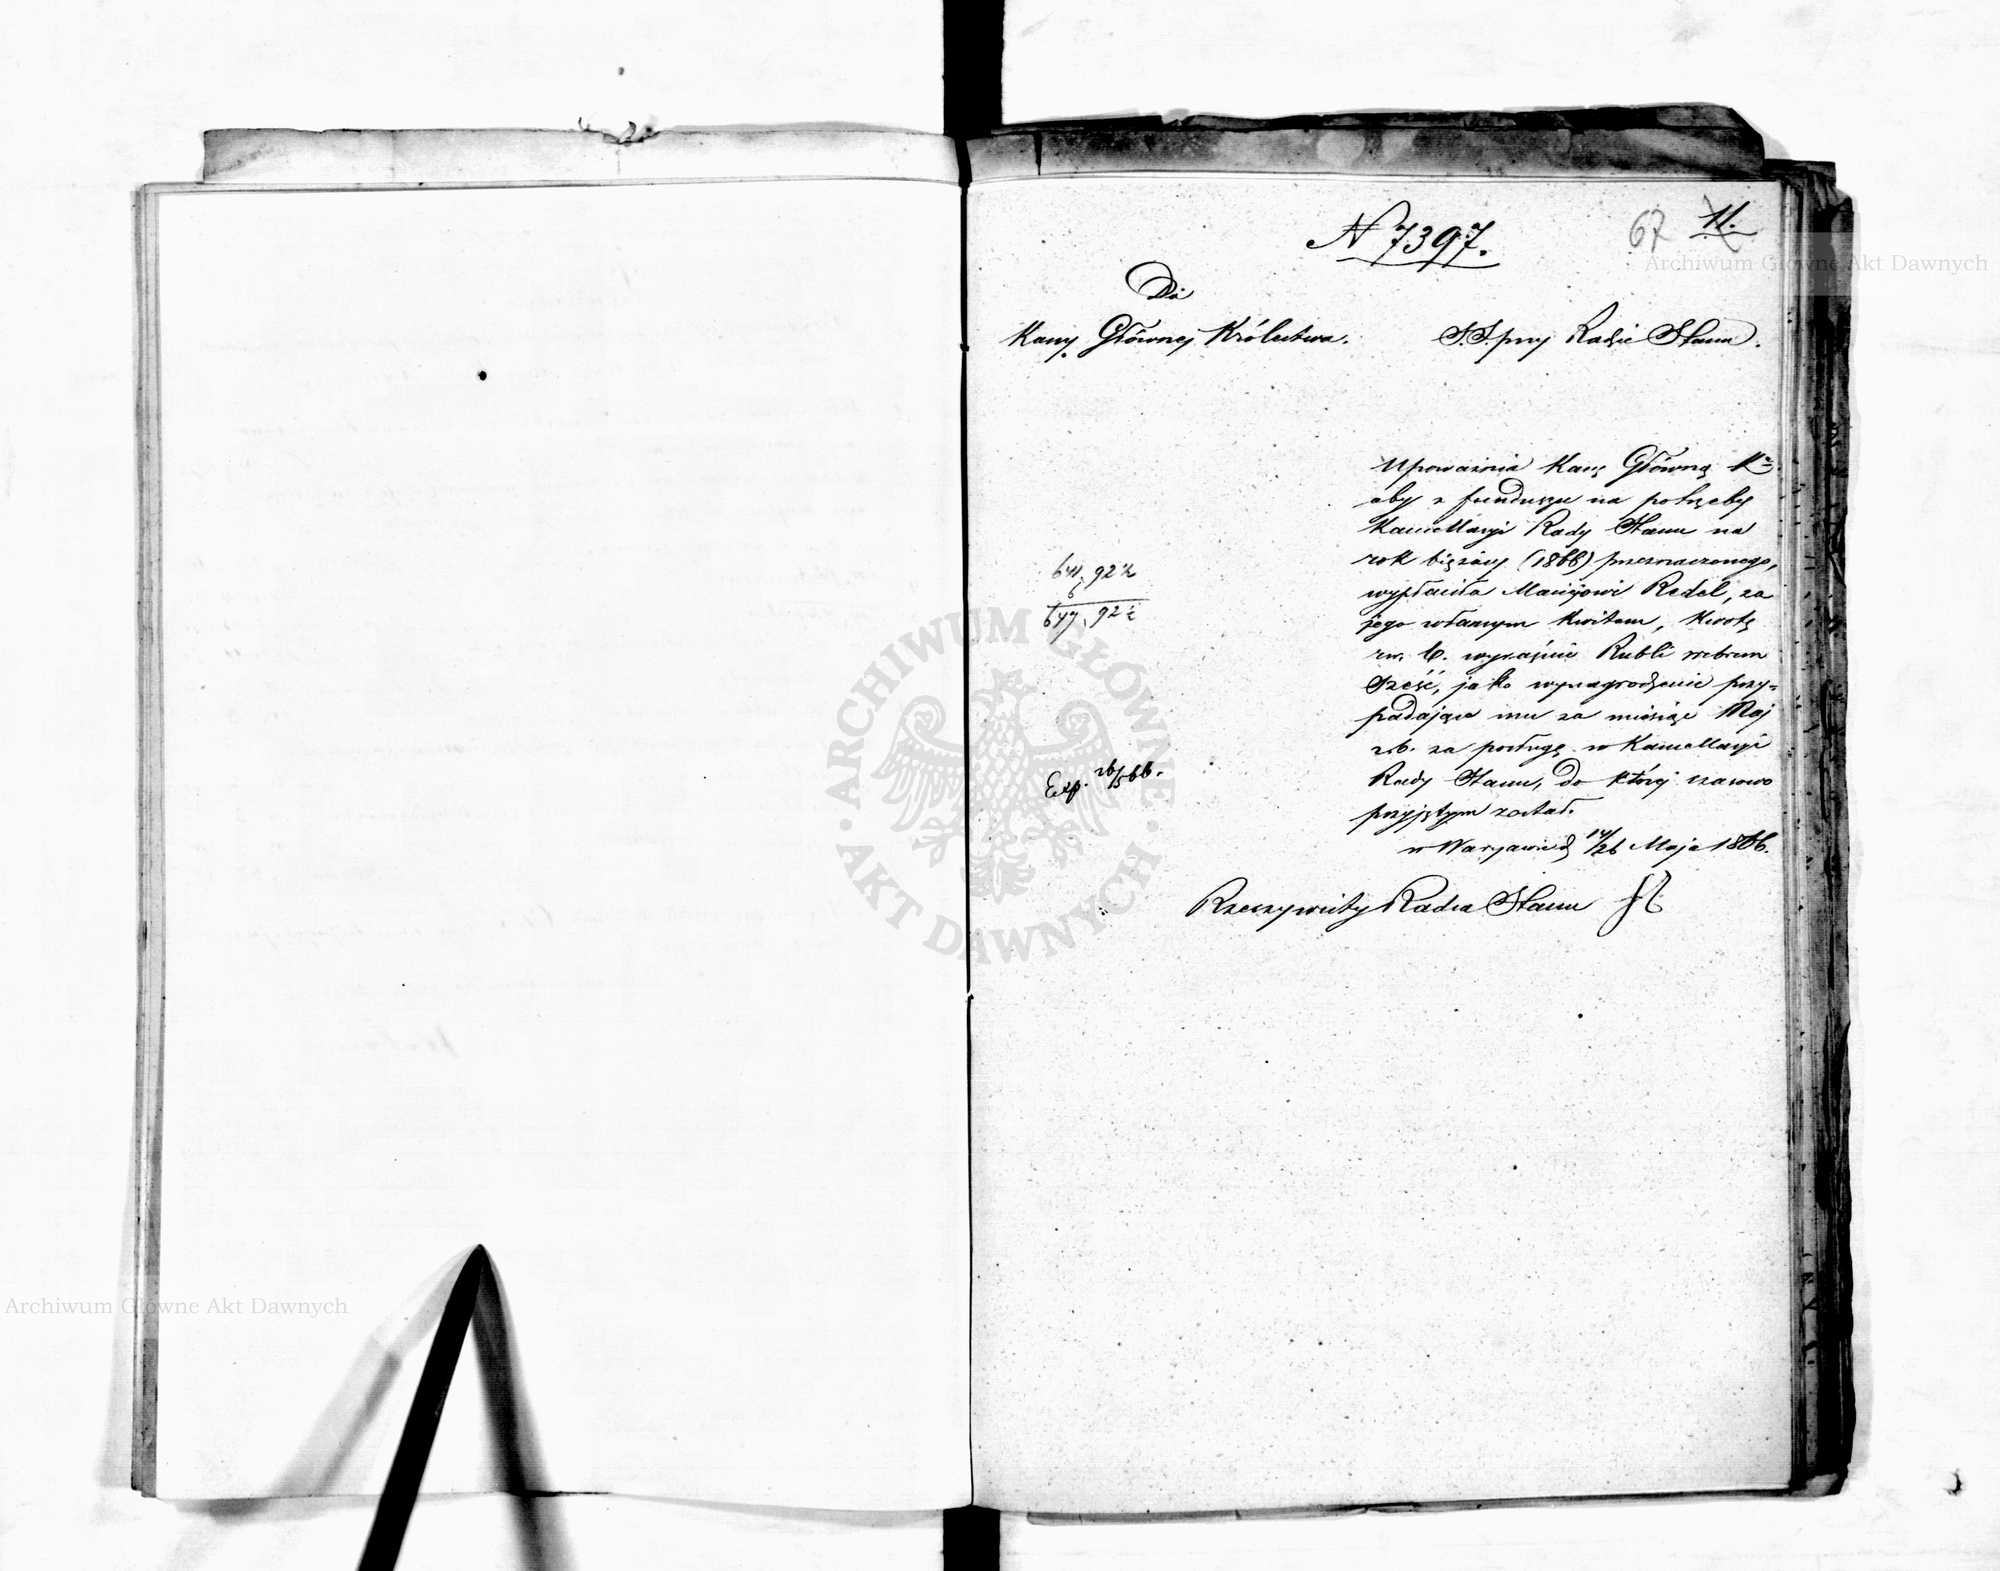 N 7397.
67 11.
Archiwum Główne Akt Dawnych
Do
Kassy Głównej Królestwa.
S.S. przy Radzie Stanu.
Upoważnia Kassę Główną K
aby z funduszu na potrzeby
Kancellaryi Rady Stanu na
rok bieżący (1866) przeznaczonego,
wypłaciła Maciejowi Redel, za
jego własnym kwitem, kwotę
rsr. 6. wyraźnie Rubli srebrem
Sześć, jako wynagrodzenie przy-
padające mu za miesiąc Maj
r.b. za posługę w Kancellaryi
Rady Stanu, do której czasowo
przyjętym został.
w Warszawie d 14/26 Maja 1866.
Rzeczywisty Radca Stanu
641, 92½
6
647, 92½
Exp. 26/5 66.
ARCHIWUM GŁÓWNE
AKT DAWNYCH
Archiwum Główne Akt Dawnych